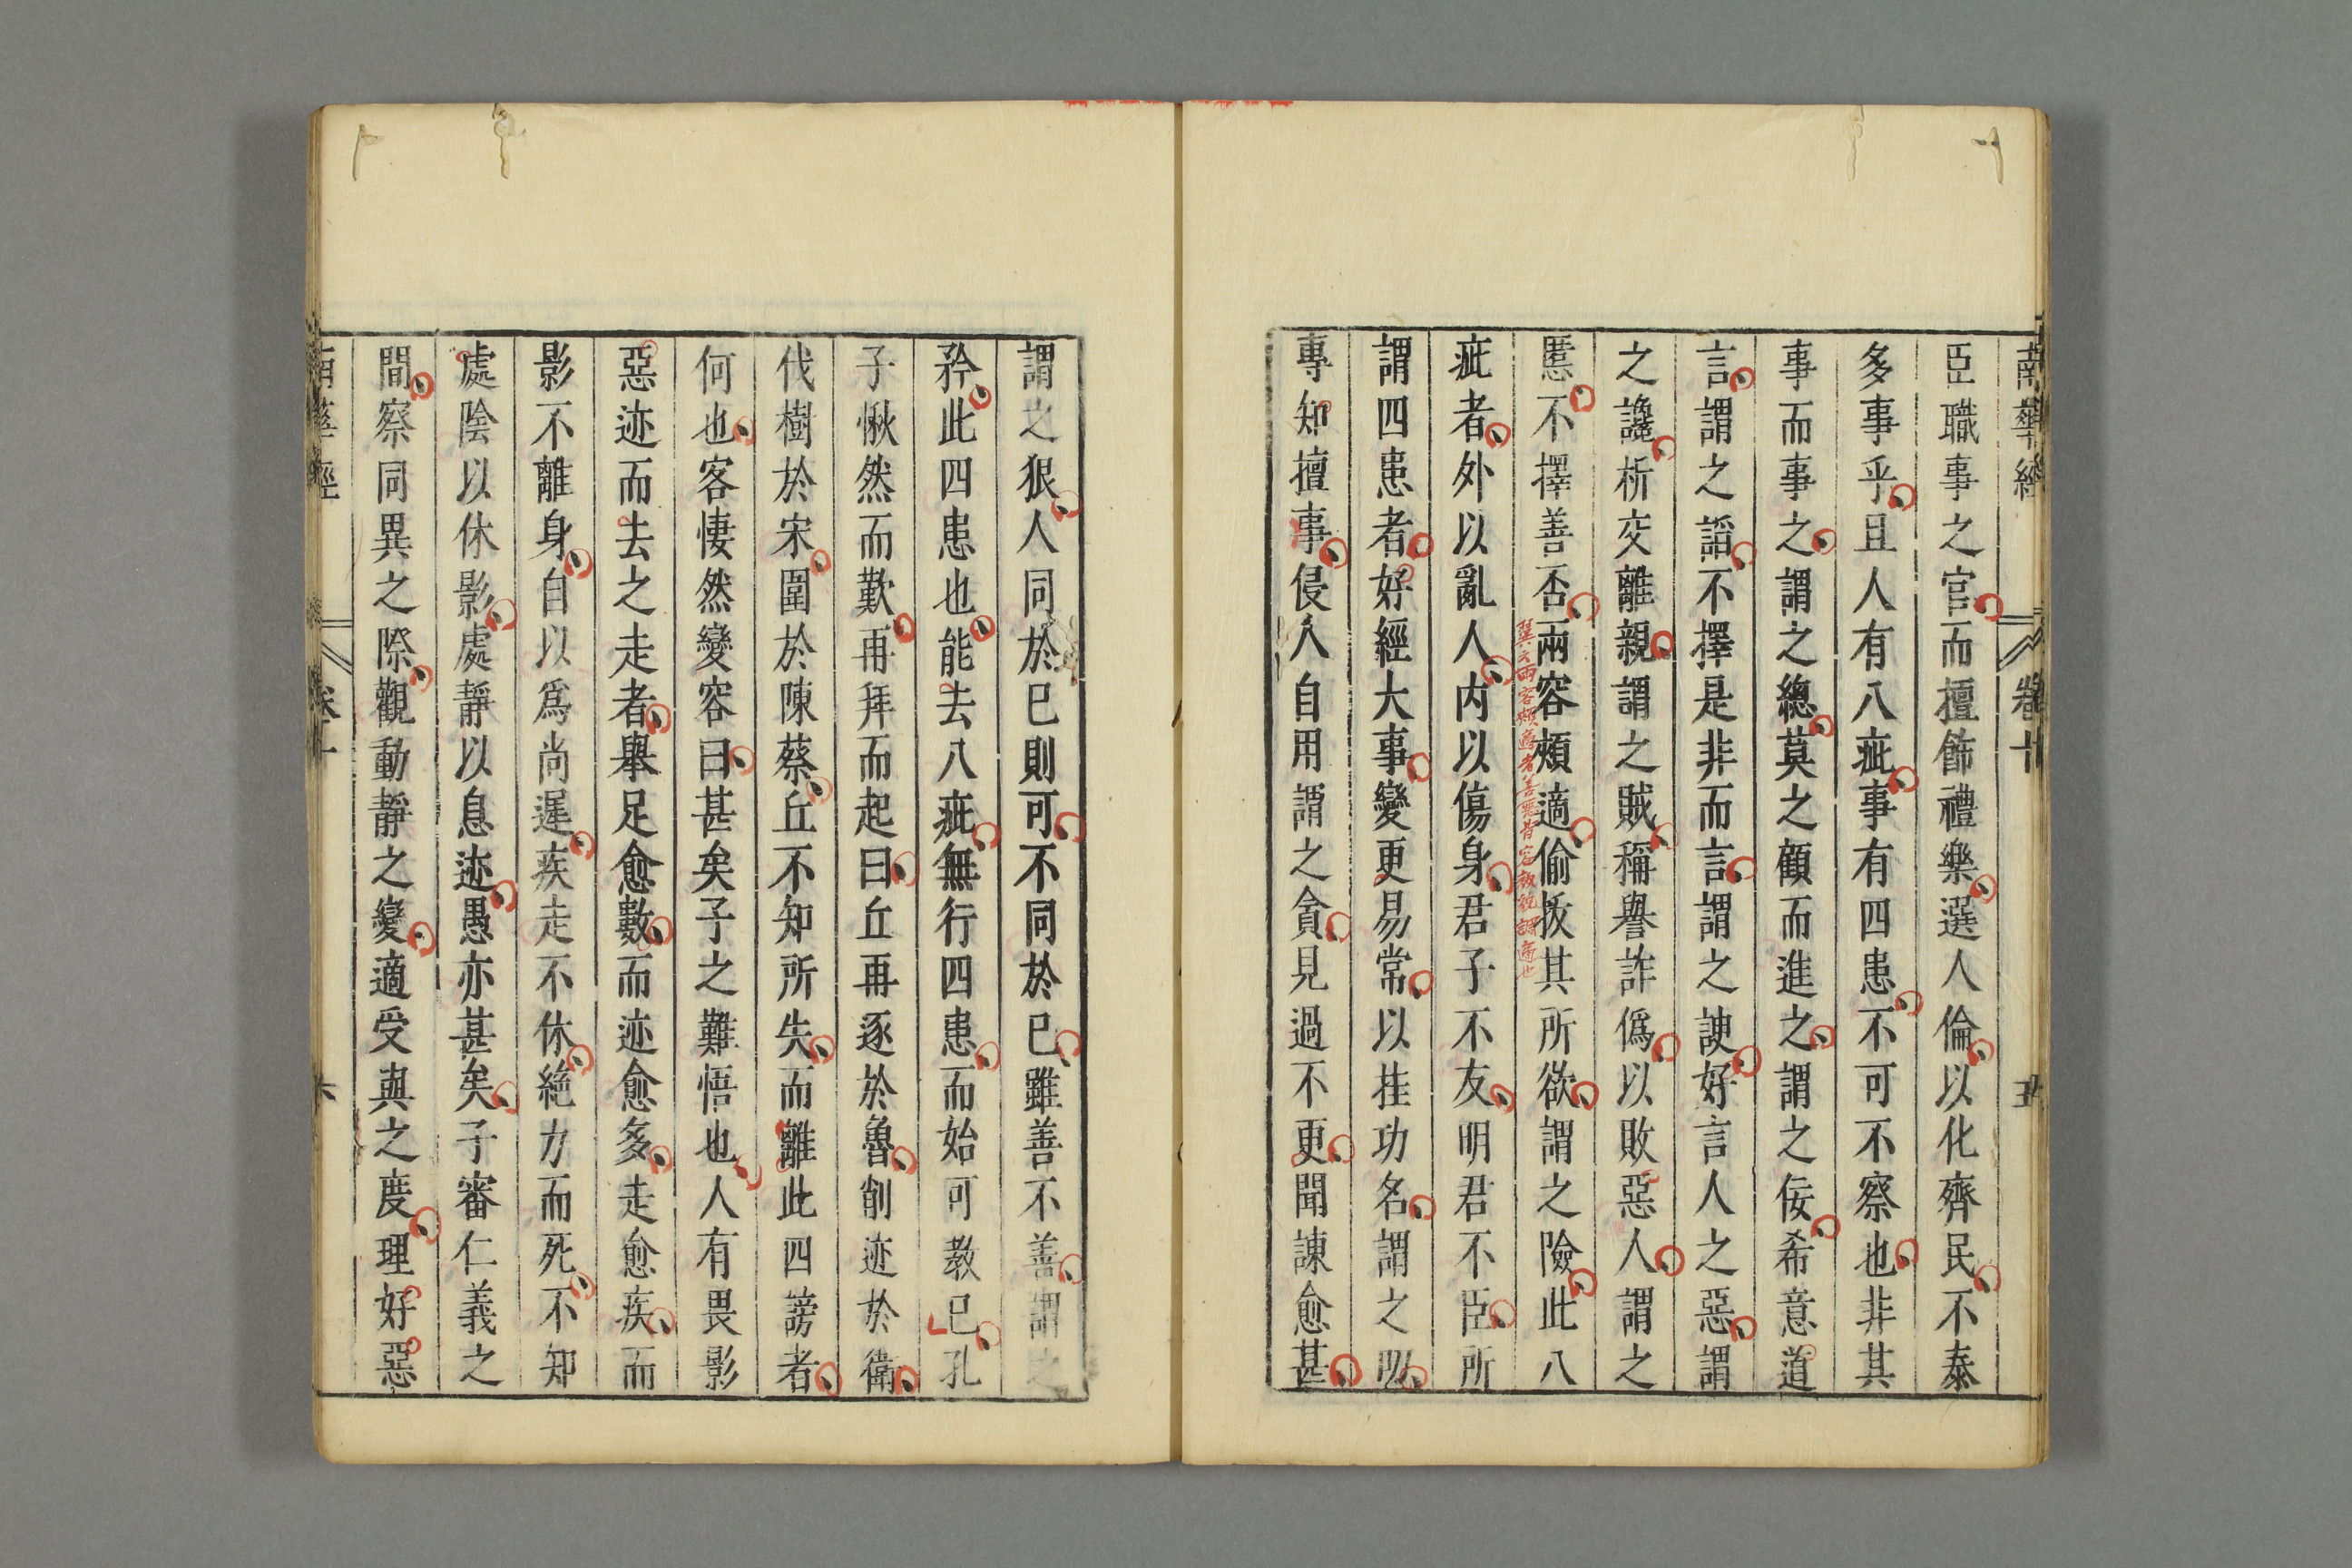 南華經 卷十 五
臣職事之官而擅飾禮樂選人倫以化齊民不泰
多事乎且人有八疵事有四患不可不察也非其
事而事之謂之總莫之顧而進之謂之佞希意道
言謂之諂不擇是非而言謂之諛好言人之惡謂
之讒析交離親謂之賊稱譽詐僞以敗惡人謂之
慝不擇善否兩容頰適偷拔其所欲謂之險此八
疵者外以亂人内以傷身君子不友明君不臣所
謂四患者好經大事變更易常以挂功名謂之叨
專知擅事侵人自用謂之貪見過不更聞諫愈甚
謂之狠人同於已則可不同於已雖善不善謂之
矜此四患也能去八疵無行四患而始可教已孔
子愀然而歎再拜而起曰丘再逐於魯削迹於衛
伐樹於宋圍於陳蔡丘不知所失而離此四謗者
何也客悽然變容曰甚矣子之難悟也人有畏影
惡迹而去之走者舉足愈數而迹愈多走愈疾而
影不離身自以爲尚遲疾走不休絶力而死不知
處陰以休影處靜以息迹愚亦甚矣子審仁義之
間察同異之際觀動靜之變適受與之度理好惡
南華經 卷十 六